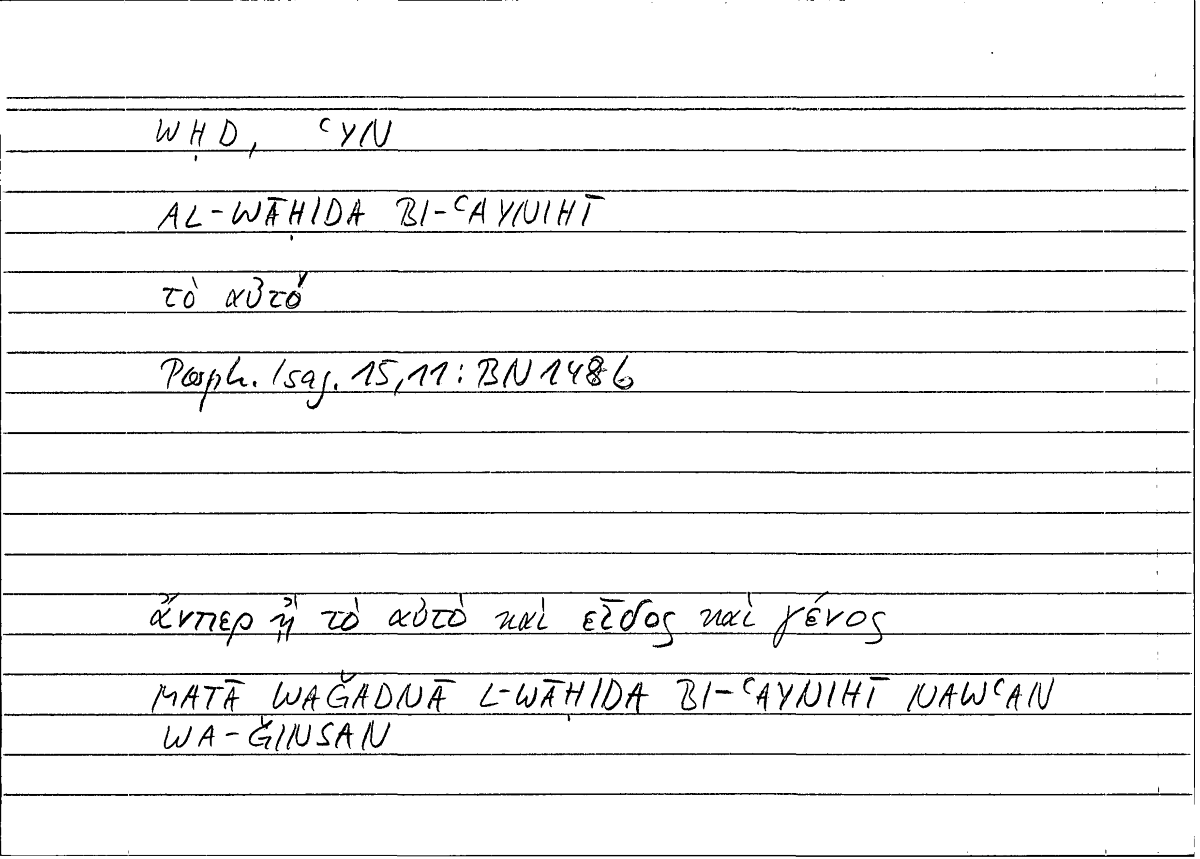 WḤD, ʿYN
AL-WĀḤIDA BI-ʿAYNIHĪ
τὸ αὐτό
Porph. Isag. 15,11: BN 148b
ἄνπερ ᾖ τὸ αὐτὸ καὶ εἶδος καὶ γένος
MATĀ WAǦADNĀ L-WĀḤIDA BI-ʿAYNIHĪ NAWʿAN
WA-ǦINSAN